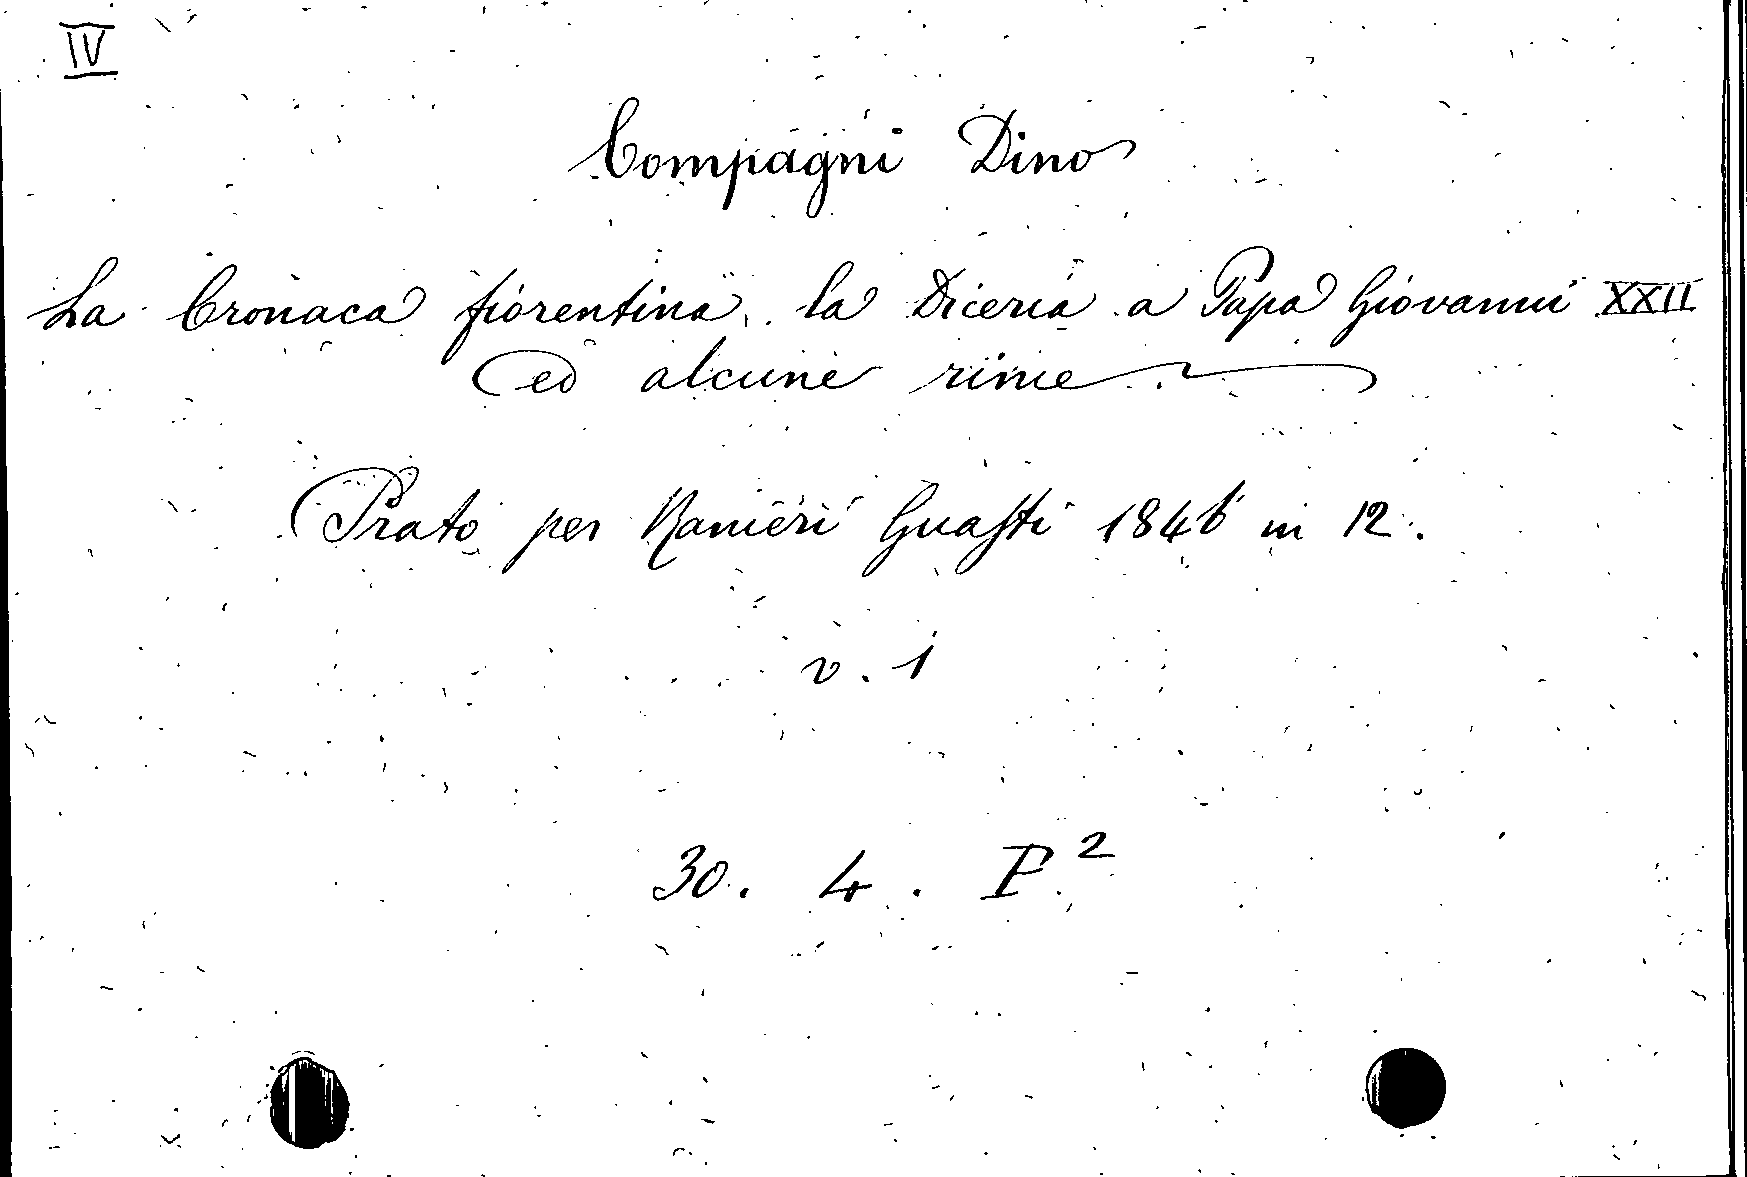 IV
Compagni Dino
La Cronaca fiorentina, la Diceria a Papa Giovanni XXII
ed alcune rime
Prato per Ranieri Guasti 1846 in 12.
v. 1
30. 4. P.2